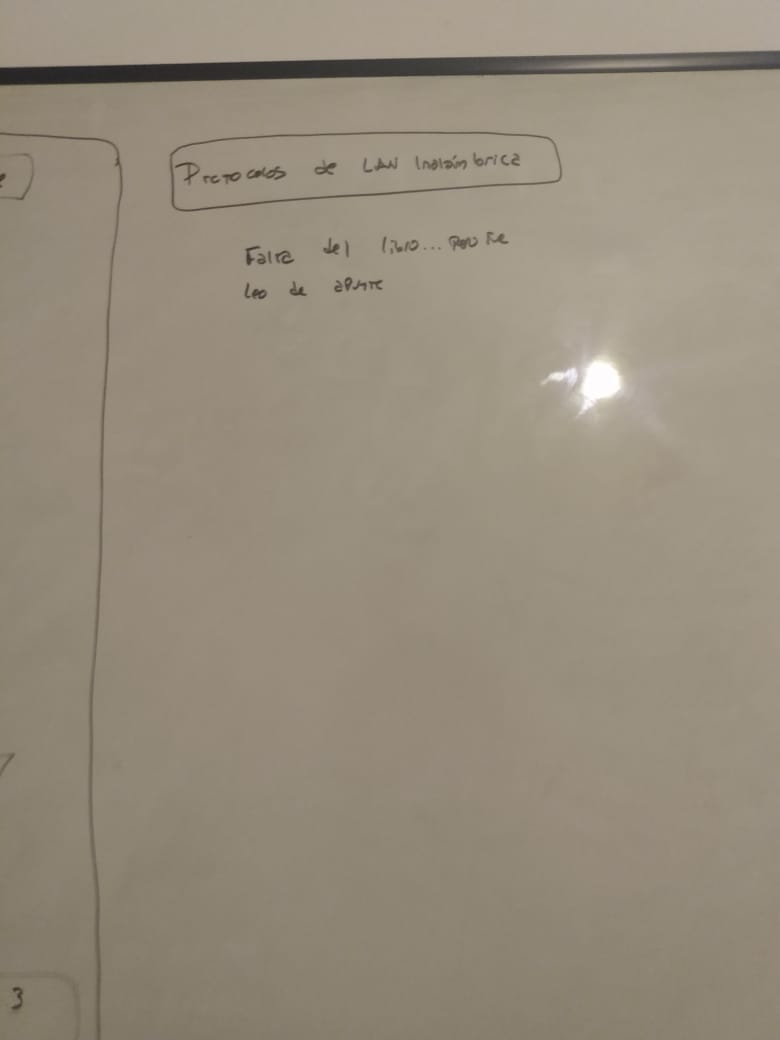 Protocolos de LAN Inalámbrica
Falta del libro...
leo de apunte
3